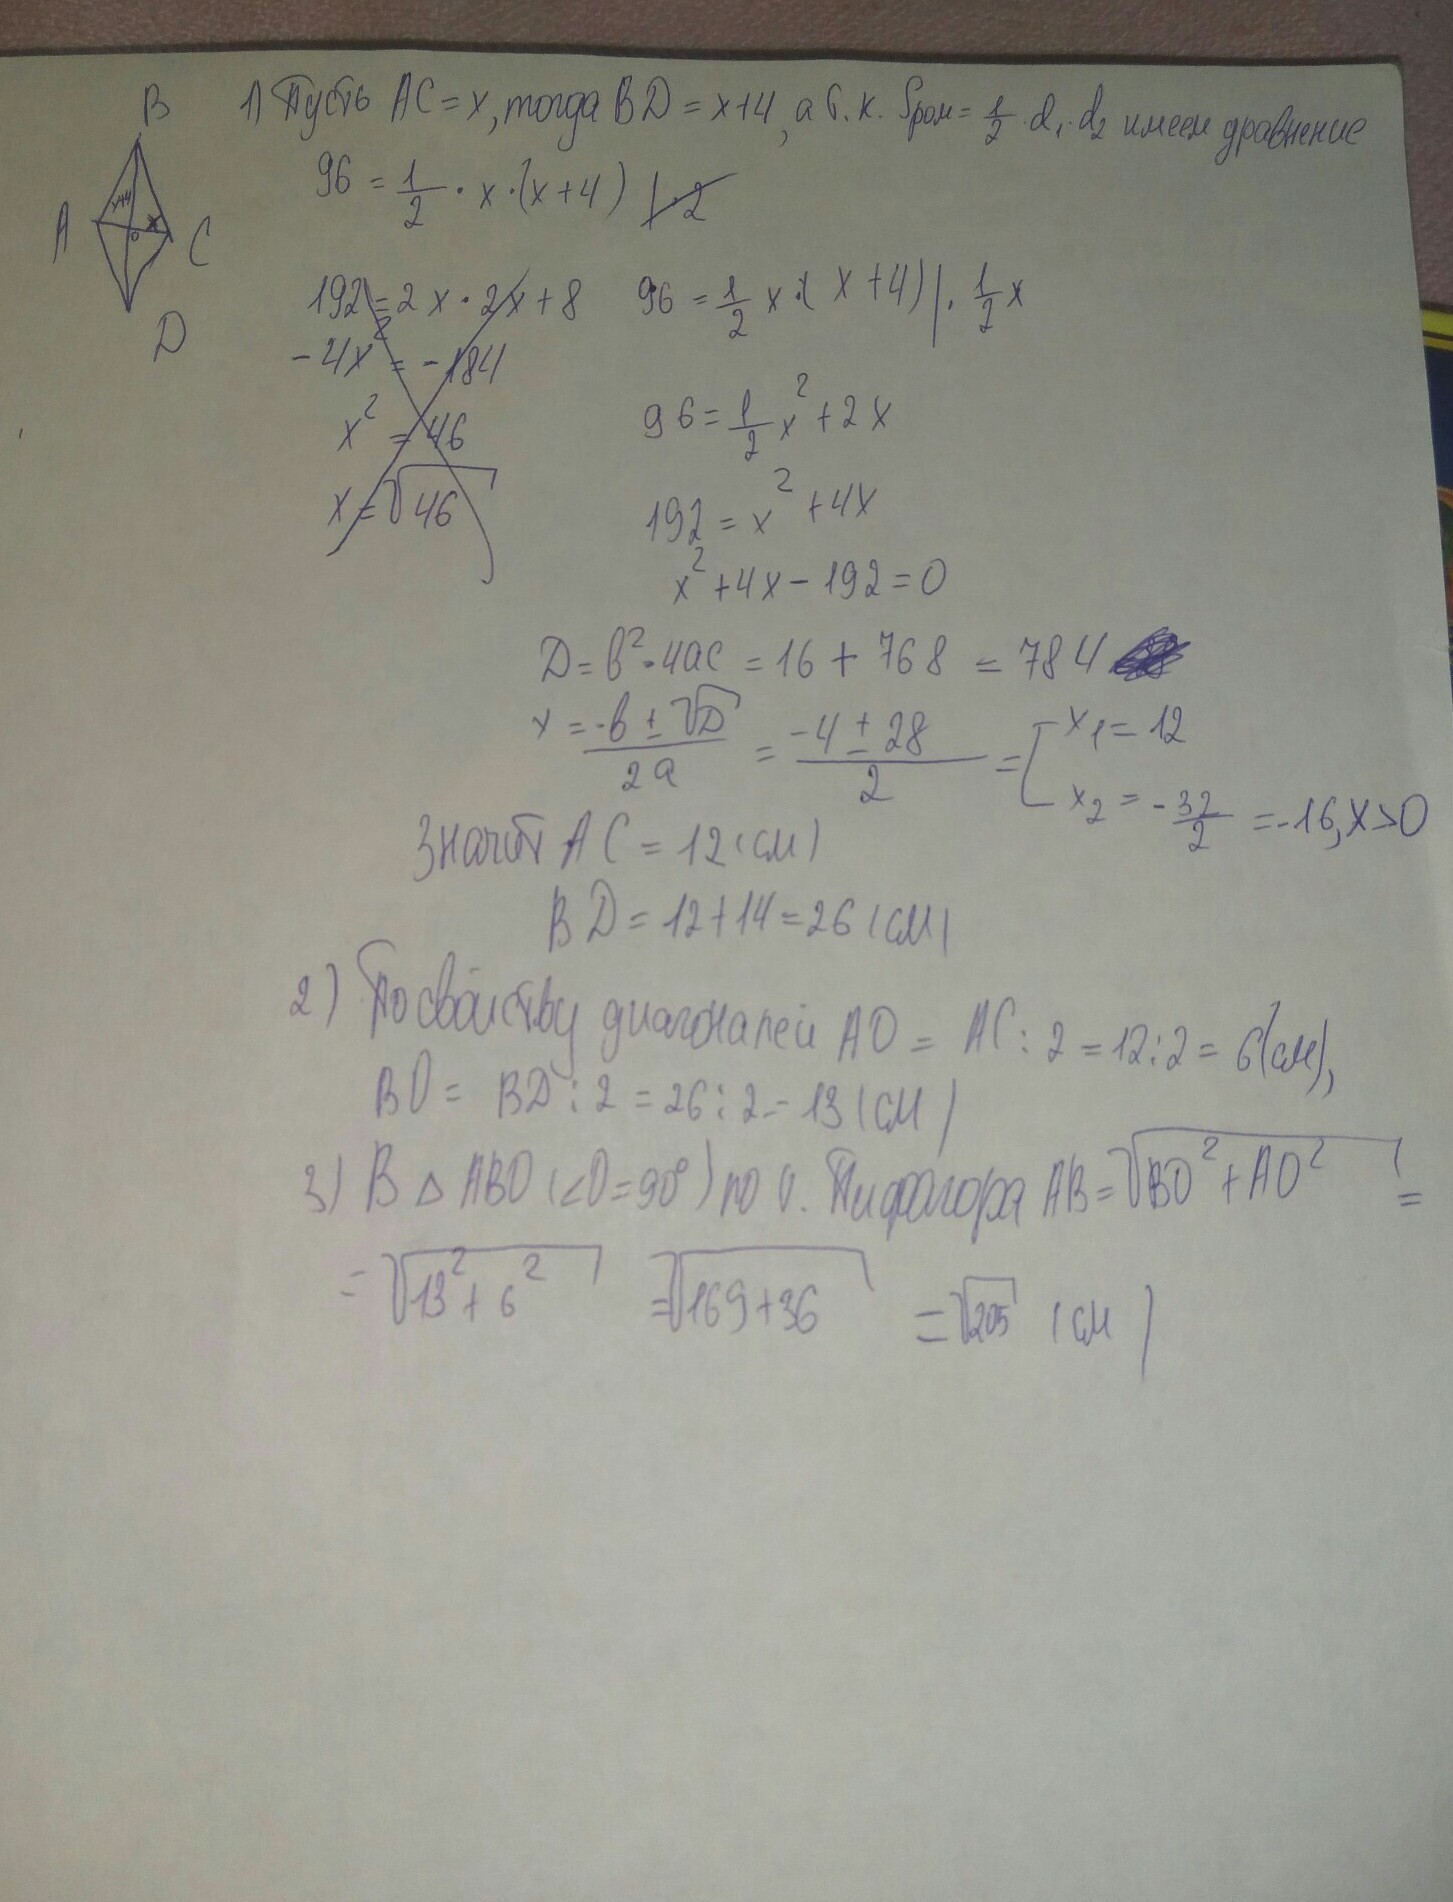 B
A
C
D
x+4
x
o
1) Пусть AC = x, тогда BD = x+4, а т.к. Sром = 1/2 · d₁ · d₂ имеем уравнение
96 = 1/2 · x · (x+4) | · 2
192 = 2x · 2x + 8
-4x² = -184
x² = 46
x = √46
96 = 1/2 x · (x+4) | · 1/2 x
96 = 1/2 x² + 2x
192 = x² + 4x
x² + 4x - 192 = 0
D = b² · 4ac = 16 + 768 = 784
x = (-b ± √D)/2a = (-4 ± 28)/2 = [ x₁ = 12
x₂ = -32/2 = -16, x>0
Значит AC = 12 (см)
BD = 12+14 = 26 (см)
2) По свойству диагоналей AO = AC : 2 = 12 : 2 = 6 (см),
BO = BD : 2 = 26 : 2 = 13 (см)
3) В △ ABO (∠O = 90°) по т. Пифагора AB = √BO² + AO² =
= √13² + 6² = √169+36 = √205 (см)